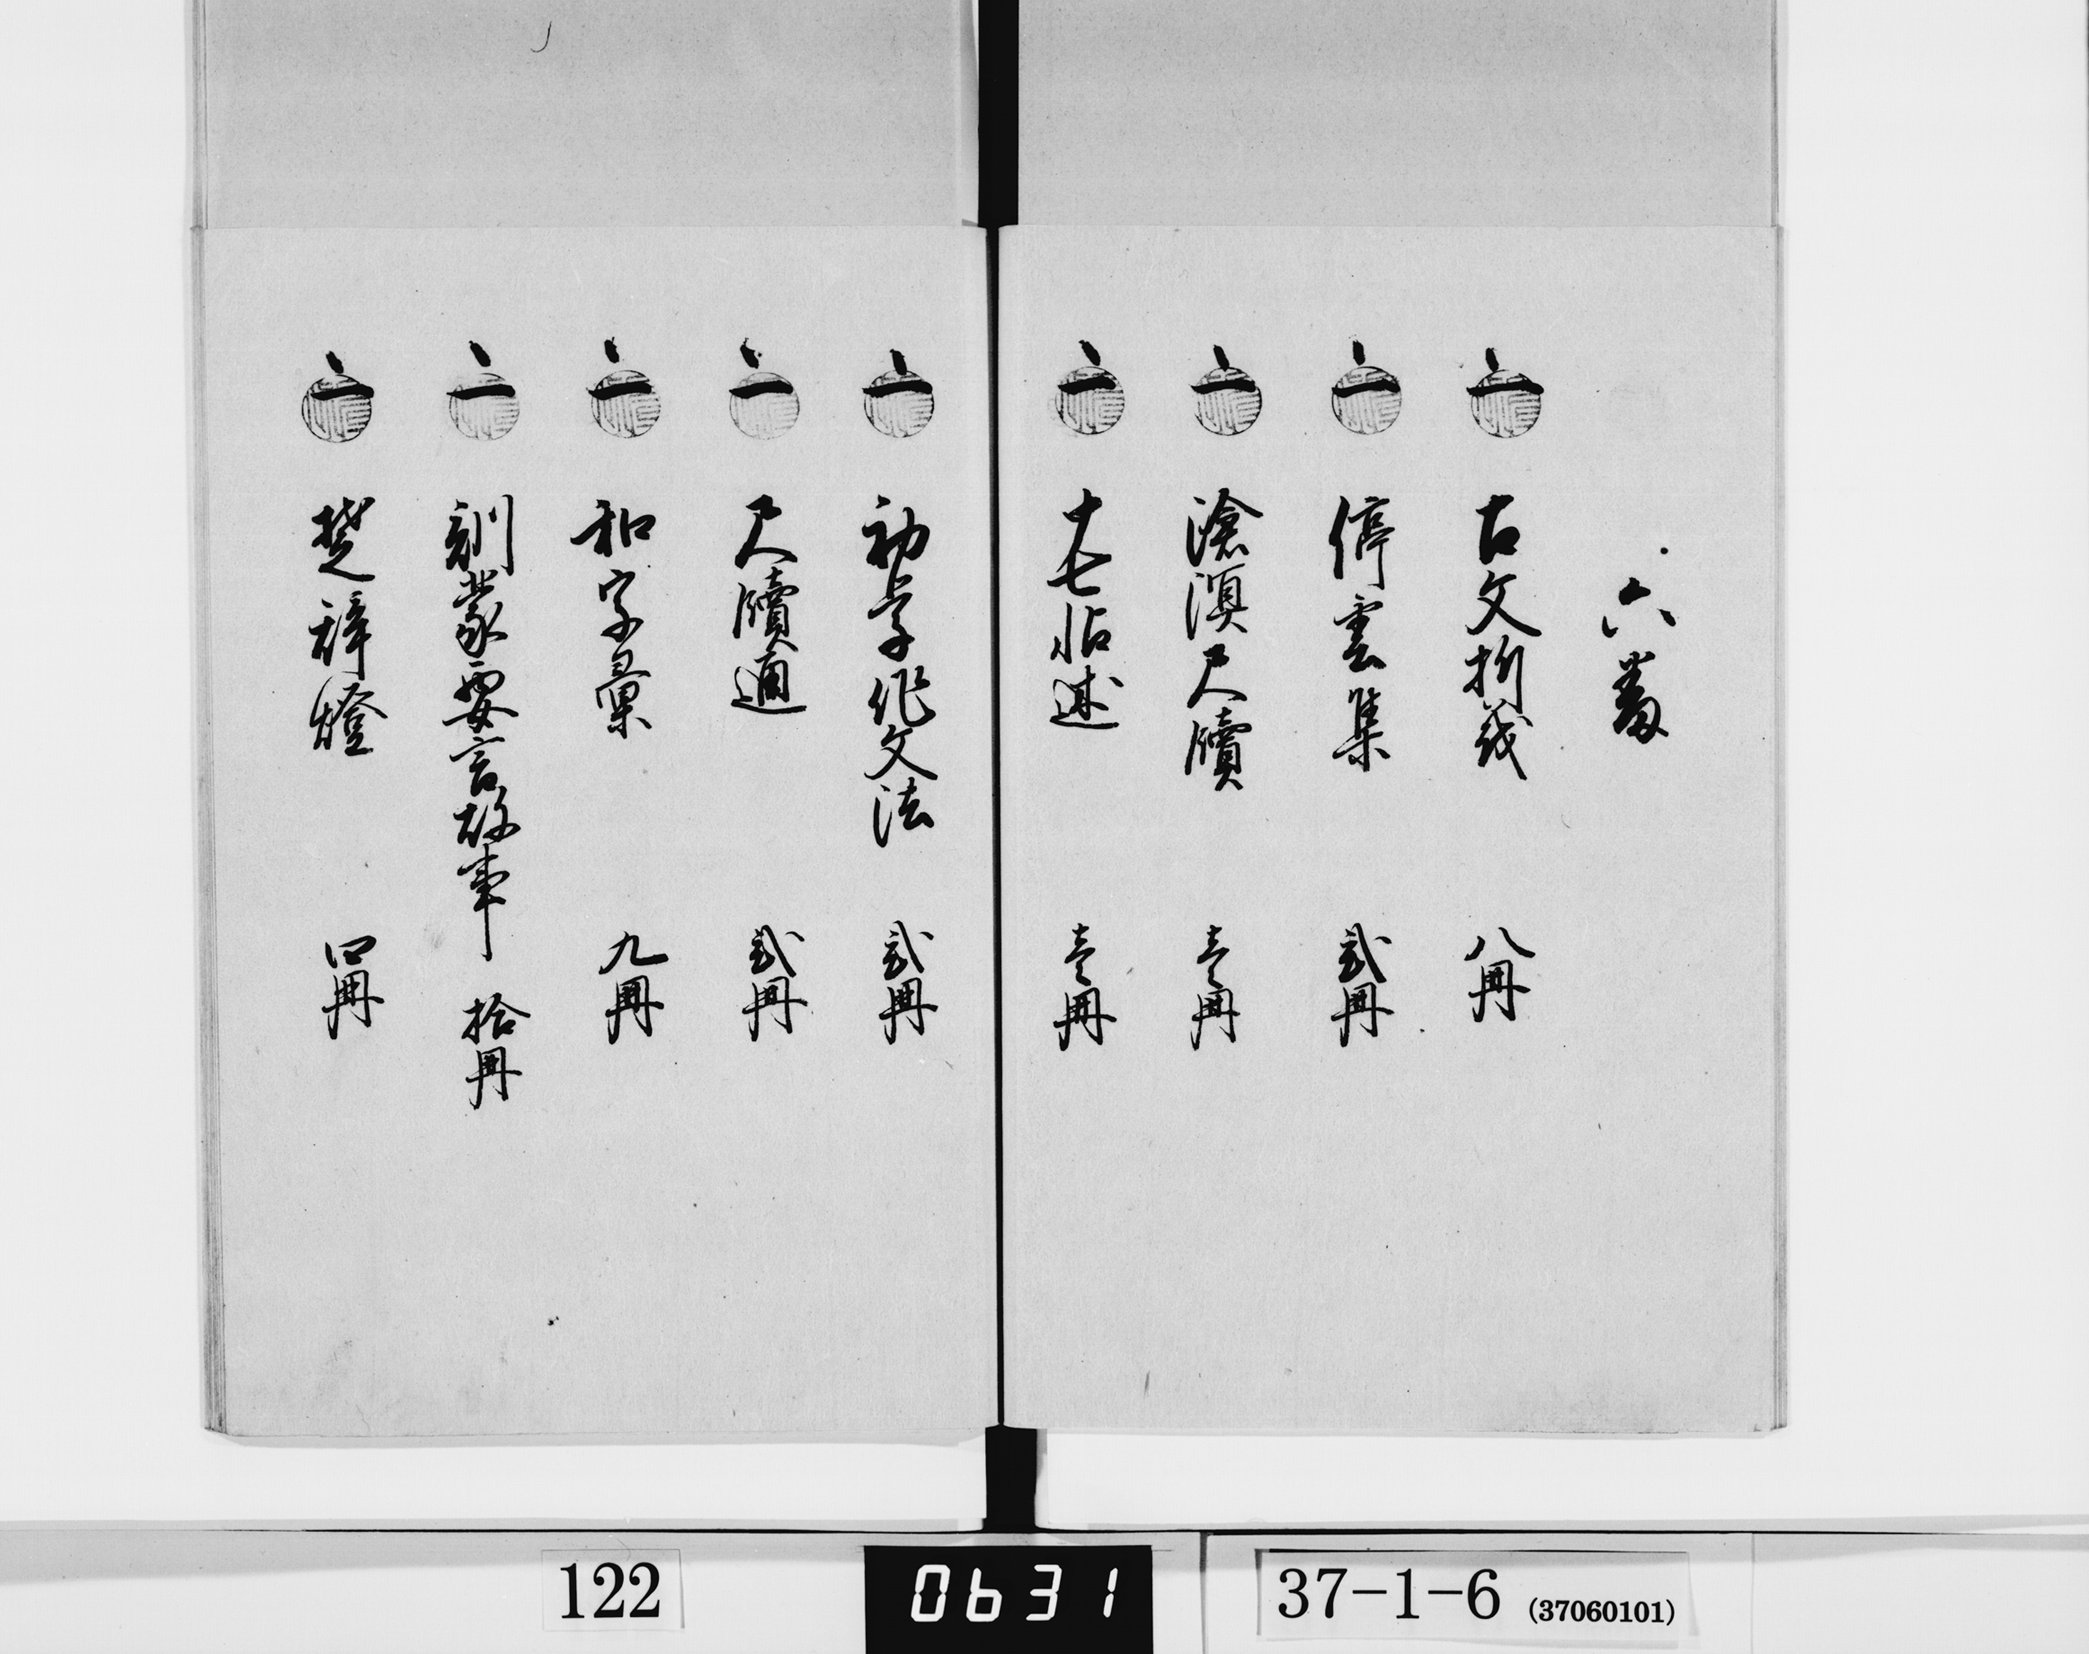 六番
一 古文析義 八冊
一 停雲集 弐冊
一 滄溟尺牘 壱冊
一 十七帖述 壱冊
一 初学作文法 弐冊
一 尺牘通 弐冊
一 和字彙 九冊
一 訓蒙要言故事 拾冊
一 楚辞燈 四冊
122
0631
37-1-6 (37060101)